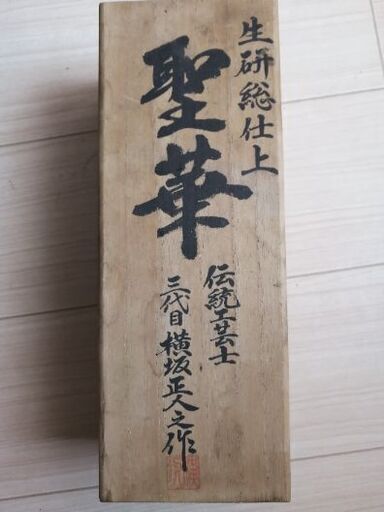 生研総仕上
聖華
伝統工芸士
三代目横坂正人之作